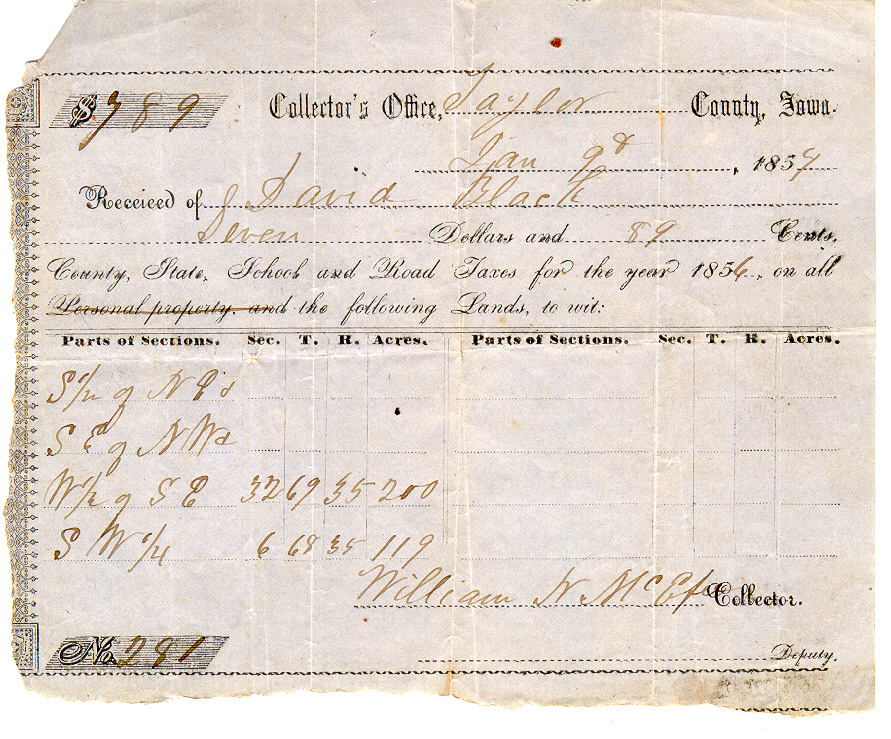 $7 89 Collector's Office, Taylor County, Iowa.
Jan 9d, 1857
Receiced of David Black
Seven Dollars and 89 Cents,
County, State, School and Road Taxes for the year 1856, on all
Personal property. and the following Lands, to wit:
Parts of Sections. Sec. T. R. Acres. Parts of Sections. Sec. T. R. Acres.
S 1/2 of N E &
S E of N W &
W 1/2 of S E 32 69 35 200
S W 1/4 6 68 35 119
William N Collector.
No. 281 Deputy.